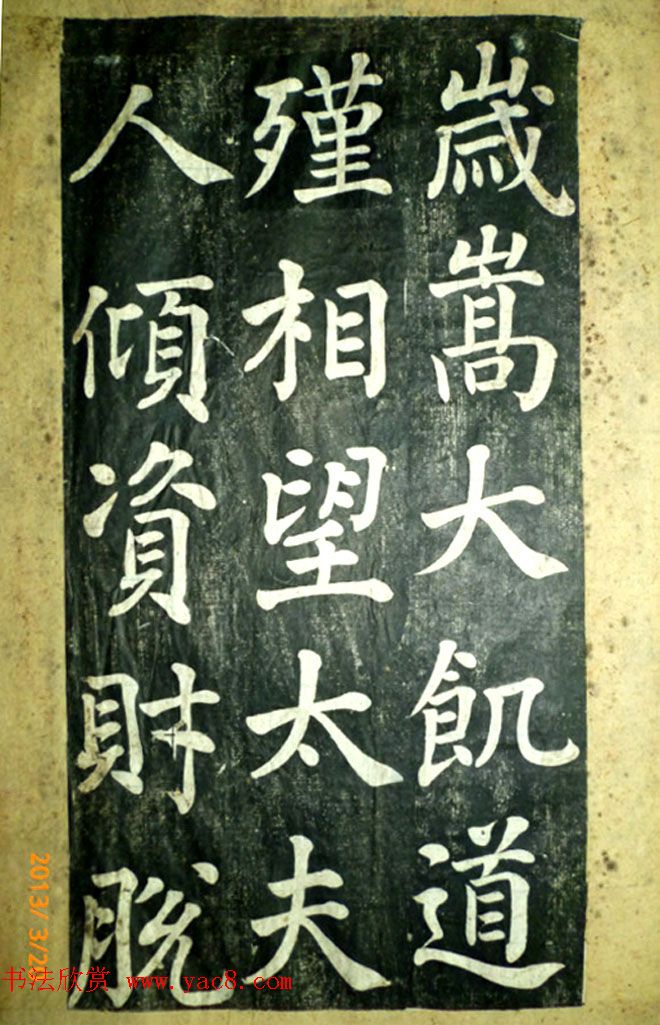 嵗嵩大飢道
殣相望太夫
人傾資財脫
2013/ 3/2
书法欣赏 www.yac8.com